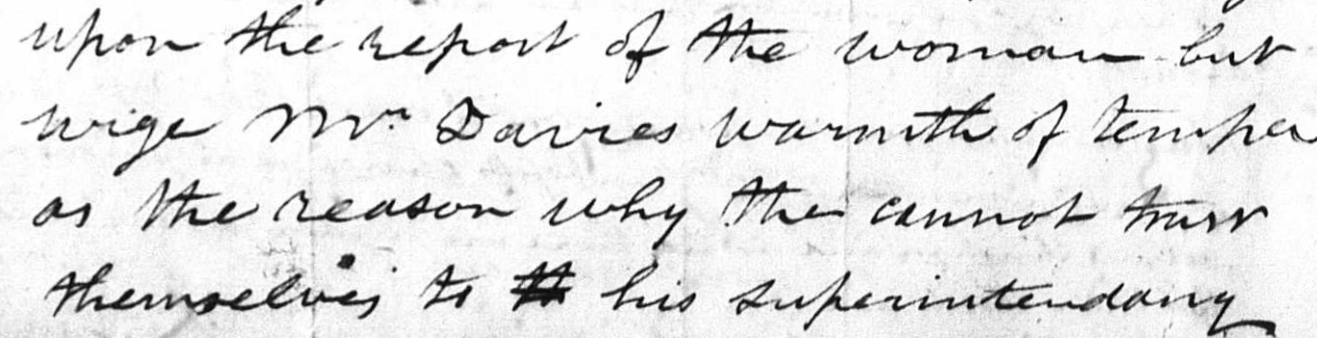 upon the report of the woman but
urge Mr Davies warmth of temper
as the reason why the cannot trust
themselves to his superintendancy